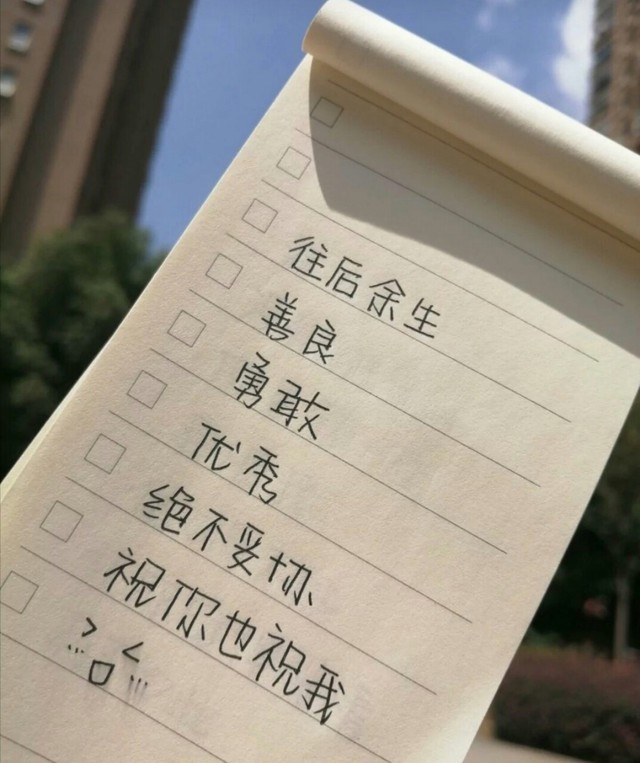 往后余生
善良
勇敢
优秀
绝不妥协
祝你也祝我